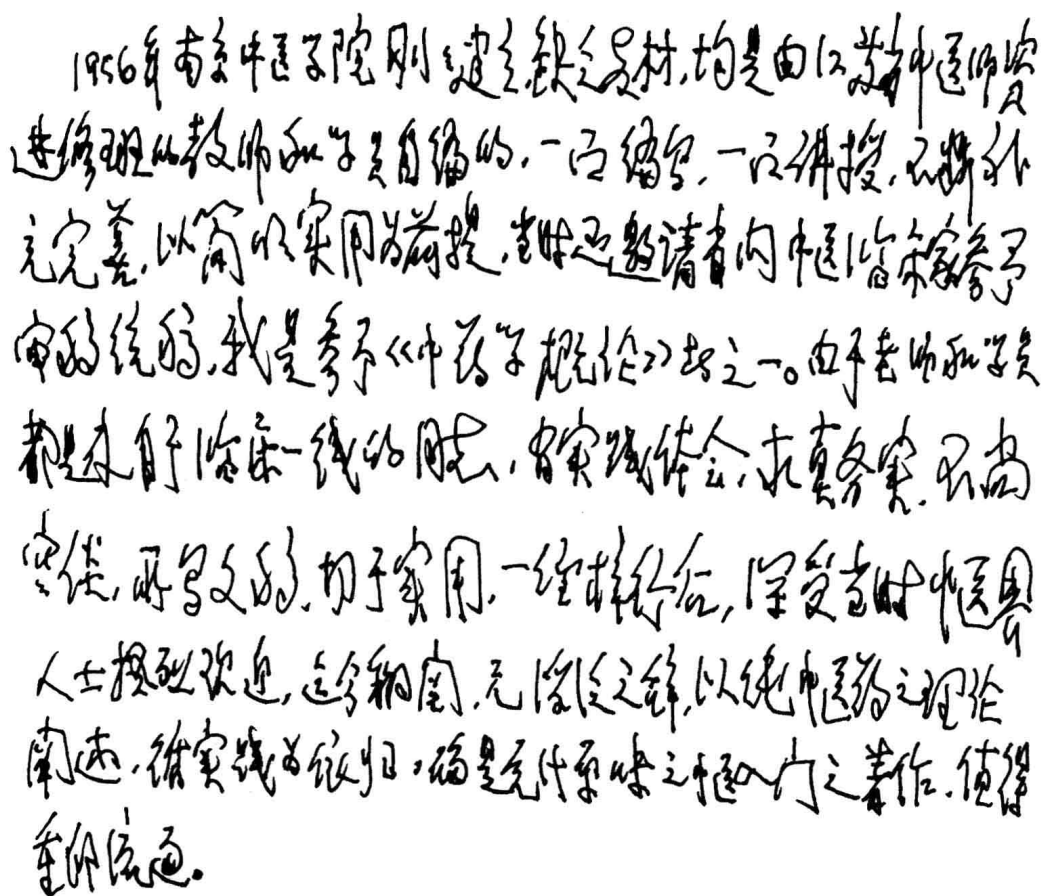 1956年南京中医学院刚建立缺乏教材,均是由江苏省中医师资
进修班的教师和学员自编的,一面编写,一面讲授,不断补
充完善,以简明实用为前提,当时还邀请省内中医临床家参予
审稿统稿,我是参予《中药学概论》者之一。由于老师和学员
都是来自于临床一线的同志,有实践体会,求真务实,不尚
空谈,所写文稿,切于实用,一经择行后,深受当时中医界
人士热烈欢迎,迄今翻阅,无浮泛之辞,以纯中医药之理论
阐述,循实践为依归,确是原味之中医入门之著作,值得
重印流通。